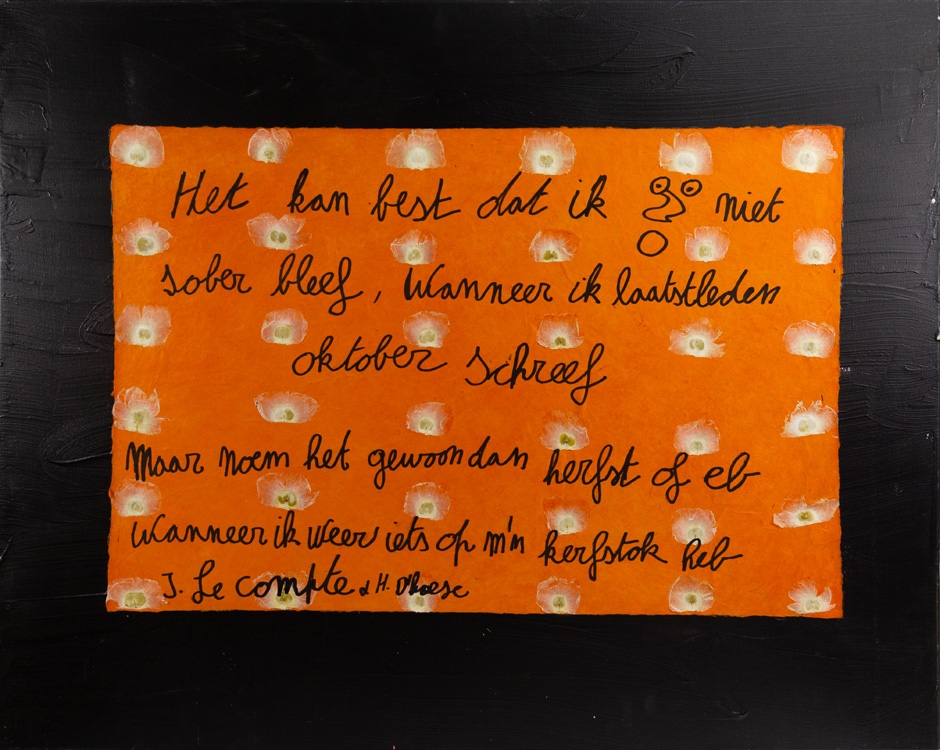 Het kan best dat ik niet
sober bleef, wanneer ik laatstleden
oktober schreef
Maar noem het gewoon dan herfst of eb
Wanneer ik weer iets op m'n kerfstok heb
J. Le Compte & H. D'hoese